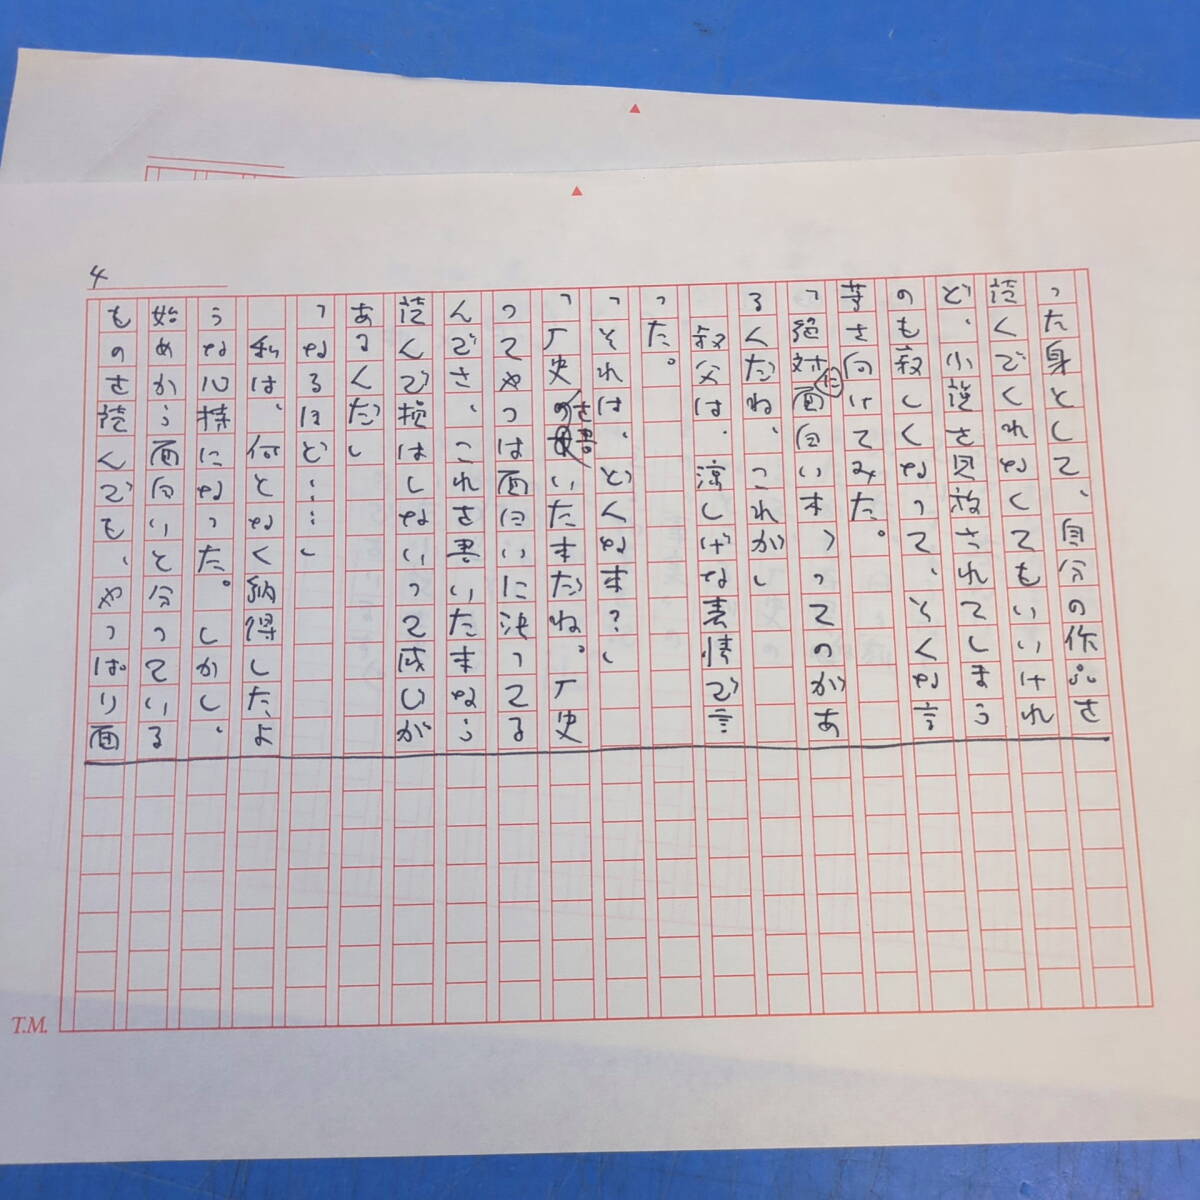 4
った身として、自分の作品を
読んでくれなくてもいいけれ
ど、小説を見放されてしまう
のも寂しくなって、そんな言
葉を向けてみた。
「絶対に面白い本、ってのがあ
るんだね、これが」
叔父は、涼しげな表情で言
った。
「それは、どんな本?」
「厂史を書いた本だね。厂史
ってやつは面白いに決ってる
んでさ、これを書いた本なら
読んで損はしないって感じが
あるんだ」
「なるほど……」
私は、何となく納得したよ
うな心持になった。しかし、
始めから面白いと分っている
ものを読んでも、やっぱり面
T.M.